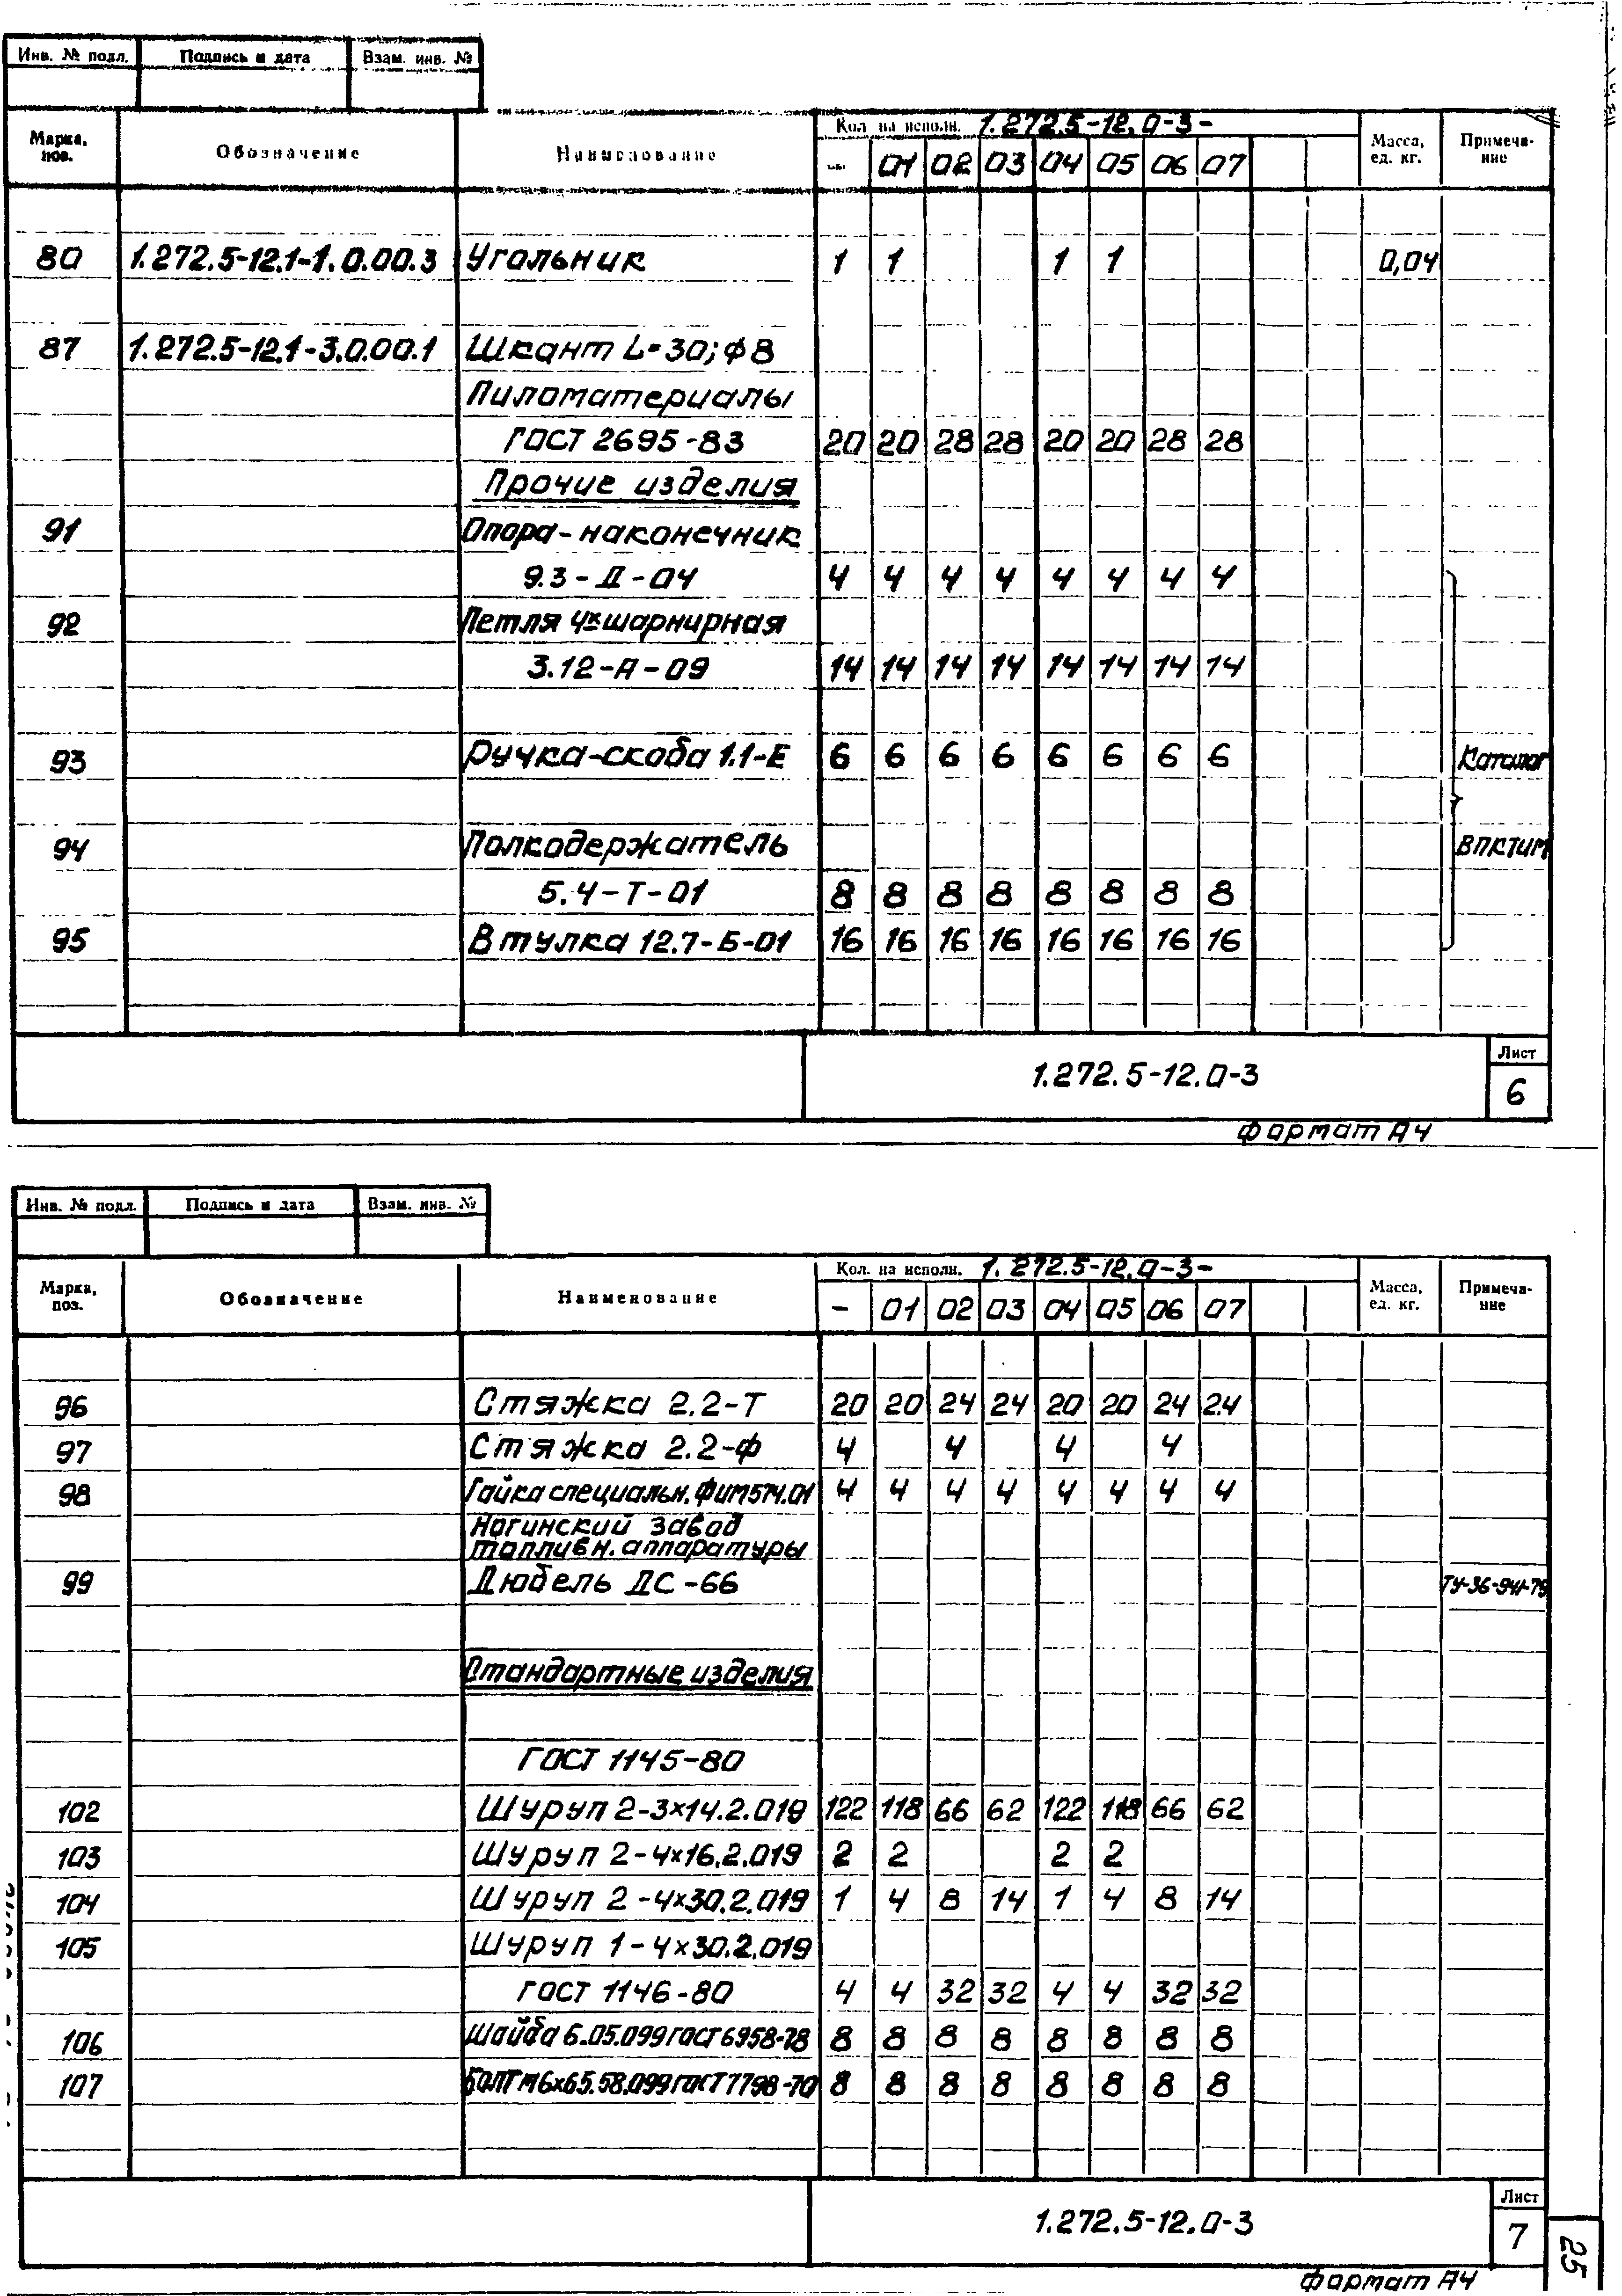 Инв. № подл. Подпись и дата Взам. инв. №
Марка, поз. Обозначение Наименование Кол. на исполн. 1.272.5-12.0-3- Масса, ед. кг. Примечание
- 01 02 03 04 05 06 07
80 1.272.5-12.1-1.0.00.3 Угольник 1 1 1 1 0,04
87 1.272.5-12.1-3.0.00.1 Шкант L=30; ф8
Пиломатериалы
ГОСТ 2695-83 20 20 28 28 20 20 28 28
Прочие изделия
91 Опора-наконечник
9.3-Д-04 4 4 4 4 4 4 4 4
92 Петля 4х шарнирная
3.12-А-09 14 14 14 14 14 14 14 14
93 Ручка-скоба 1.1-Е 6 6 6 6 6 6 6 6 Каталог
94 Полкодержатель ВПКТИМ
5.4-Т-01 8 8 8 8 8 8 8 8
95 Втулка 12.7-Б-01 16 16 16 16 16 16 16 16
1.272.5-12.0-3 Лист 6
Формат А4
Инв. № подл. Подпись и дата Взам. инв. №
Марка, поз. Обозначение Наименование Кол. на исполн. 1.272.5-12.0-3- Масса, ед. кг. Примечание
- 01 02 03 04 05 06 07
96 Стяжка 2.2-Т 20 20 24 24 20 20 24 24
97 Стяжка 2.2-Ф 4 4 4 4
98 Гайка специальн. ФИМ574.01 4 4 4 4 4 4 4 4
Ногинский завод
топливн. аппаратуры
99 Дюбель ДС-66 ТУ-36-941-79
Стандартные изделия
ГОСТ 1145-80
102 Шуруп 2-3х14.2.019 122 118 66 62 122 118 66 62
103 Шуруп 2-4х16.2.019 2 2 2 2
104 Шуруп 2-4х30.2.019 1 4 8 14 1 4 8 14
105 Шуруп 1-4х30.2.019
ГОСТ 1146-80 4 4 32 32 4 4 32 32
106 Шайба 6.05.099 ГОСТ 6958-78 8 8 8 8 8 8 8 8
107 Болт М6х65.58.099 ГОСТ 7798-70 8 8 8 8 8 8 8 8
1.272.5-12.0-3 Лист 7
25
Формат А4